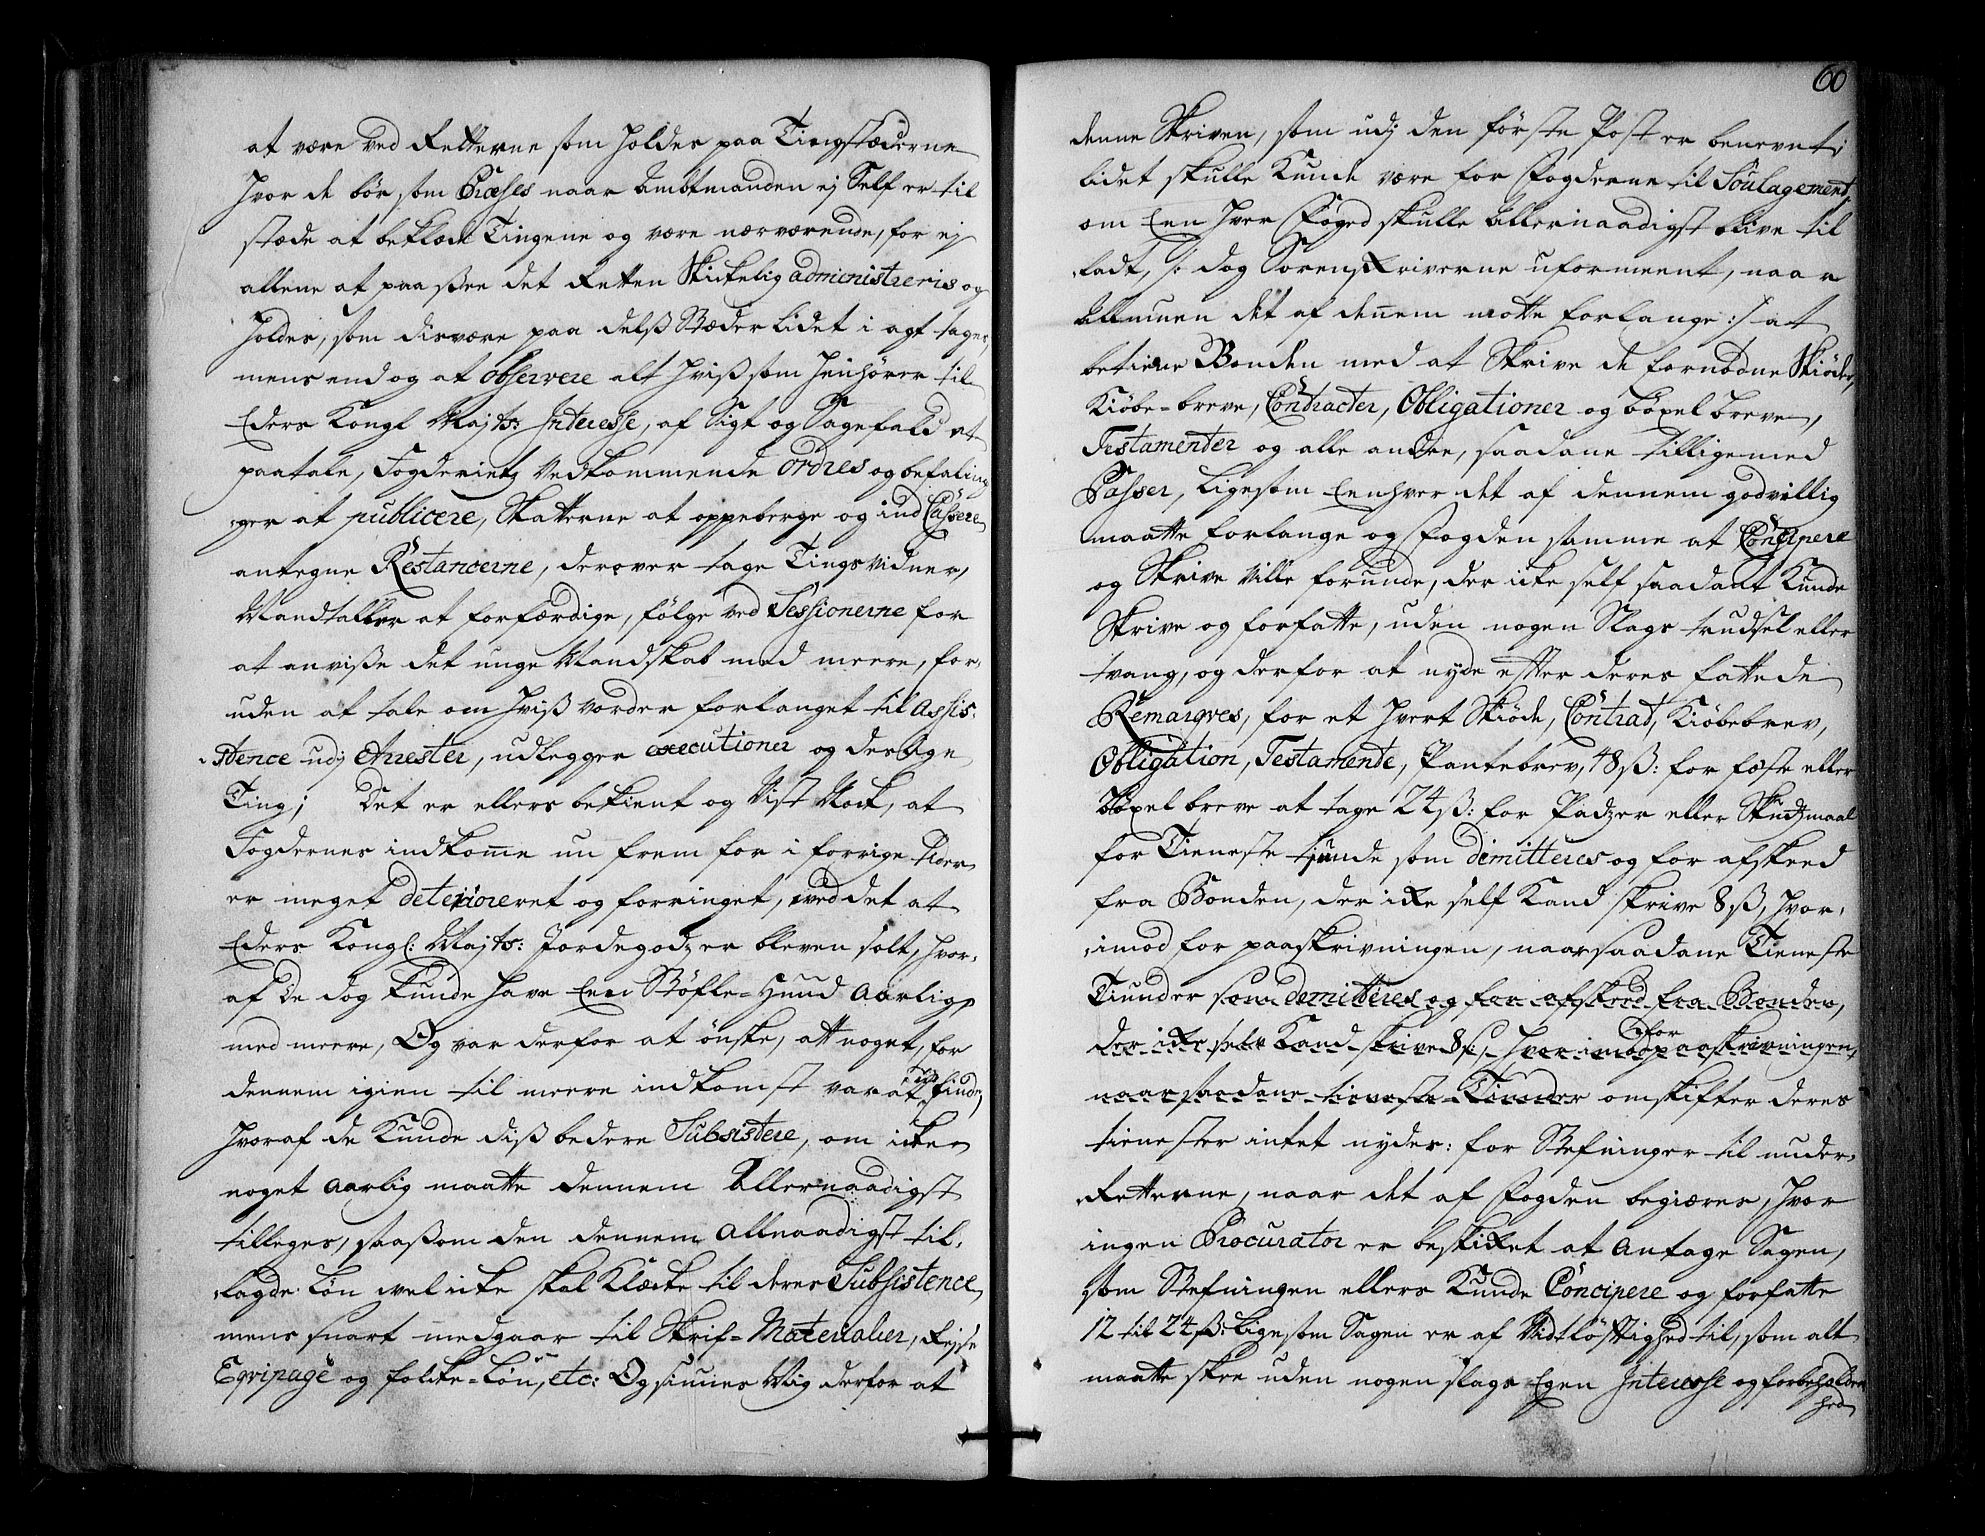 at være ved Retterne som holdes paa Tingstæderne
hvor de bør som Præses naar Ambtmanden ej Self er til
stæde at beklæde Tingene og være nærværende, for ej
allene at paasee det Retten Skickelig administreris og
holdes, som disværre paa delß Stæder lidet i agt tages,
mens end og at observere alt hviß som henhører til
Eders Kongl Majts: Interesse, af Sigt og Sagefald at
paatale, Fogderietz Vedkommende Ordres og befalin-
ger at publicere, Skatterne at oppeberge og ind Cassere
antegne Restancerne, derover tage Tingsvidner,
Mandtaller at forfærdige, følge ved Sessionerne for
at anviiße det unge Mandskab med meere, for-
uden at tale om hviß vorder forlanget til Assis-
stence udj Arrester, udlegger executioner og deslige
Ting; Det er ellers bekient og Vist Nock, at
Fogdernes indkome nu frem for i forrige tider
er meget deterioreret og forringet, ved det at
Eders Kongl: Majts: Jordegodz er bleven solt, hvor-
af De dog kunde have Een Støfle-Hund Aarlig,
med meere, Og var derfor at ønske, att noget for
dennem igien til meere indkomst var at ud finde,
hvoraf de kunde diß bedere Subsistere, om icke
noget Aarlig maatte dennem Allernaadigst
tilleges, saasom den dennem Allnaadigst til-
lagde Løn vel icke skal Klæcke til deres Subsistence,
mens snart medgaar til Skrif-Materialier, Rejse
Eqvipage og folcke-Løn, etc: Og siunes Mig derfor at
60
denne Skriven, som udj den første Post er benevnt,
lidet skulle kunde være for Fogderne til Soulagement,
om Een hver Foged skulle Allernaadigst blive til
ladt, /: dog Sorenskriverne uformeent, naar
Allmuen det af dennem motte forlange :/ at
betiene Bonden med at Skrive de fornødne Skiøder,
Kiøbe-breve, Contracter, Obligationer og bøxel breve,
Testamenter og alle andre, saadane tilligemed
Passer, ligesom Eenhver det af dennem godvillig
maatte forlange og Fogden samme at Concipere
og Skrive ville forunde, der icke self saadant kunde
Skrive og forfatte, uden nogen Slags trudsel eller
tvang, og derfor at nyde efter deres fattede
Remarqves, for et hvert Skiøde, Contract, Kiøbebrev,
Obligation, Testamente, Pantebrev, 48 ß: for fæste eller
Bøxel breve at tage 24 ß: for Padzer eller Skudzmaal
for Tieneste tiunde som dimitteres og for afskeed
fra Bonden, der ikke self kand skrive 8 ß, hvor-
imod for paaskrivningen, naar saadane Tieneste
Tiunder som demitteres og for afskeed fra Bonden,
der ikke selv kand skrive 8 ß:, hvorimod for paaskrivningen,
naar saadane tieneste Tiunder omskifter deres
tienester intet nydes: for Stefninger til under-
Retterne, naar det af Fogden begiæres, hvor
ingen Procurator er beskiket at antage Sagen,
som Stefningen ellers kunde Concipere og forfatte
12 til 24 ß: ligesom Sagen er af Vidtløftighed til, som alt
maatte skee uden nogen slags Egen Interesse og forbeholden
hed